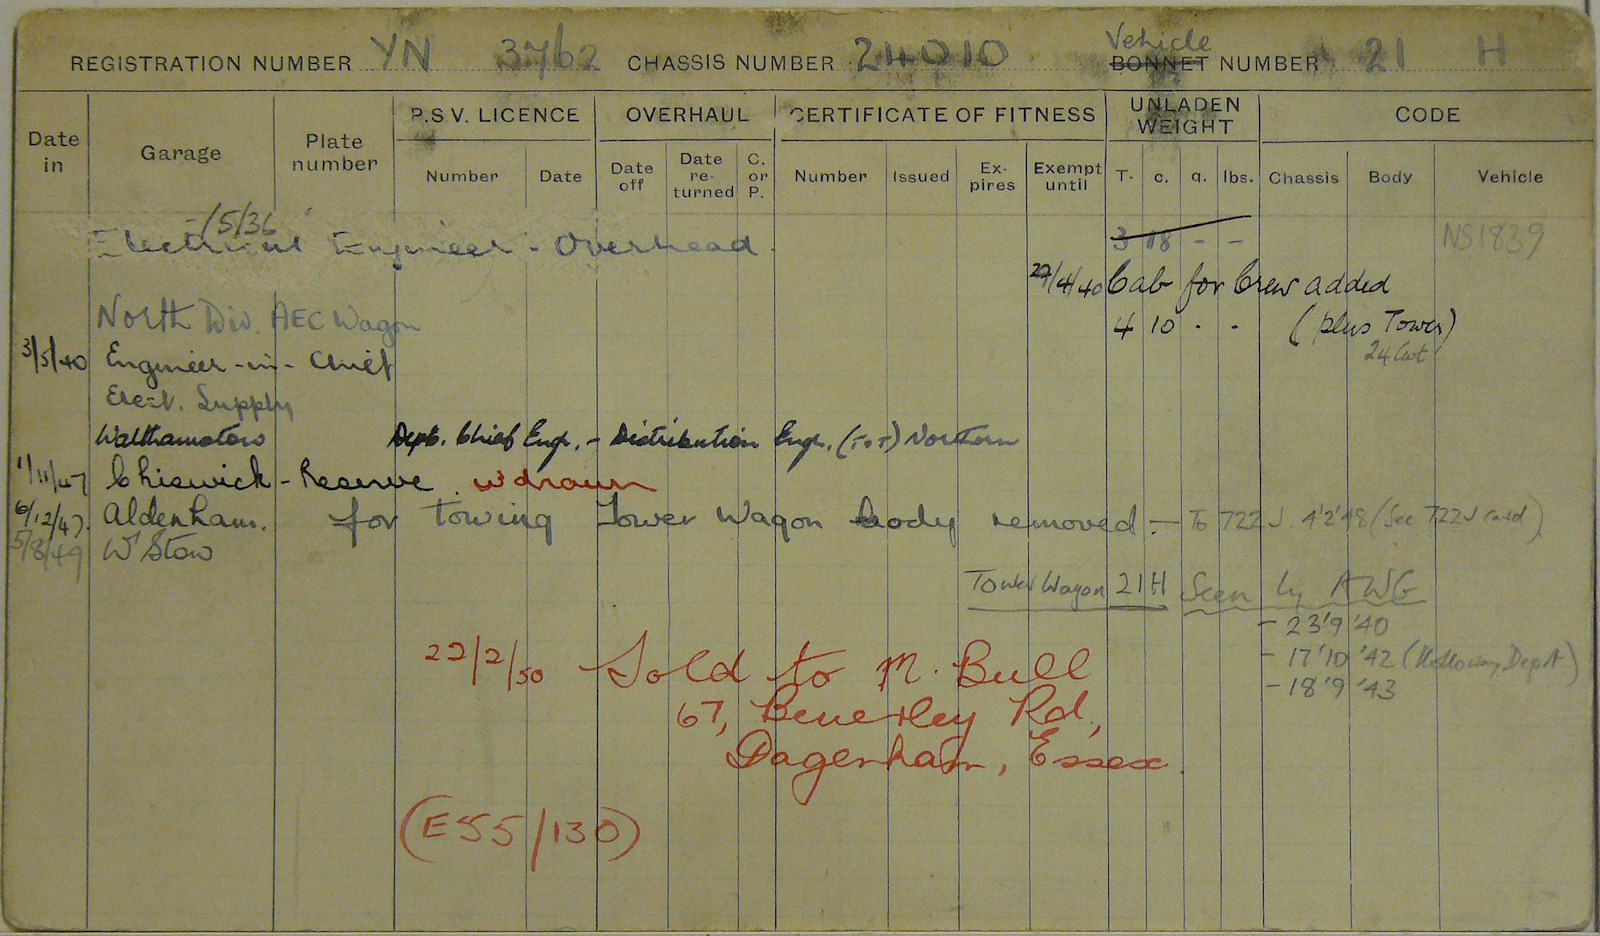 Vehicle
REGISTRATION NUMBER YN 3762 CHASSIS NUMBER 24010 BONNET NUMBER 21 H
Date in Garage Plate number P.S.V. LICENCE OVERHAUL CERTIFICATE OF FITNESS UNLADEN WEIGHT CODE
Number Date Date off Date re-turned C. or P. Number Issued Ex-pires Exempt until T. c. q. lbs. Chassis Body Vehicle
-/5/36
Electrical Engineer - Overhead. 3 18 - - NS1839
27/4/40 Cab for Crew added
North Div. AEC Wagon 4 10 - - (plus Tower)
24 Cwt
3/5/40 Engineer-in-Chief
Elect. Supply
Walthamstow Dept. Chief Engr. - Distribution Engr. (T+T) Northern
1/11/47 Chiswick - Reserve. wdrawn
6/12/47. Aldenham. for towing Tower Wagon body removed - To 722J. 4'2'48 (See 722J card)
5/8/49 W'Stow
Tower Wagon 21H Seen by AWG
- 23'9'40
- 17'10'42 (Holloway Depot)
- 18'9'43
22/2/50 Sold to M. Bull
67, Beverley Rd,
Dagenham, Essex.
(E55/130)